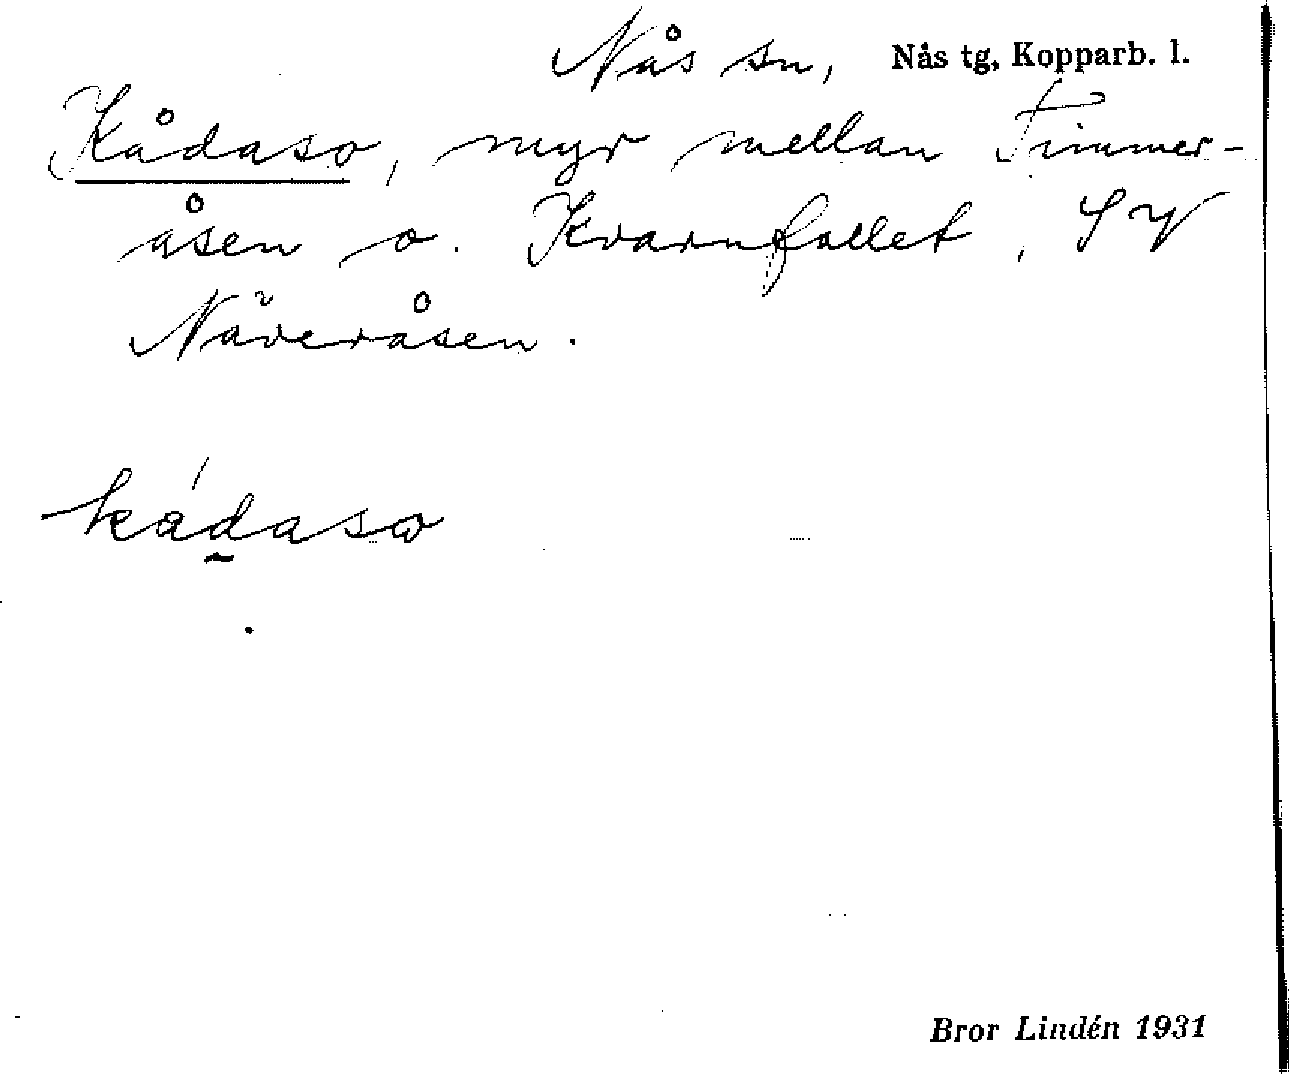 Nås sn, Nås tg, Kopparb. l.
Kådaso, myr mellan Timmer-
åsen o. Kvarnfallet, SV
Näveråsen.
kádaso
Bror Lindén 1931